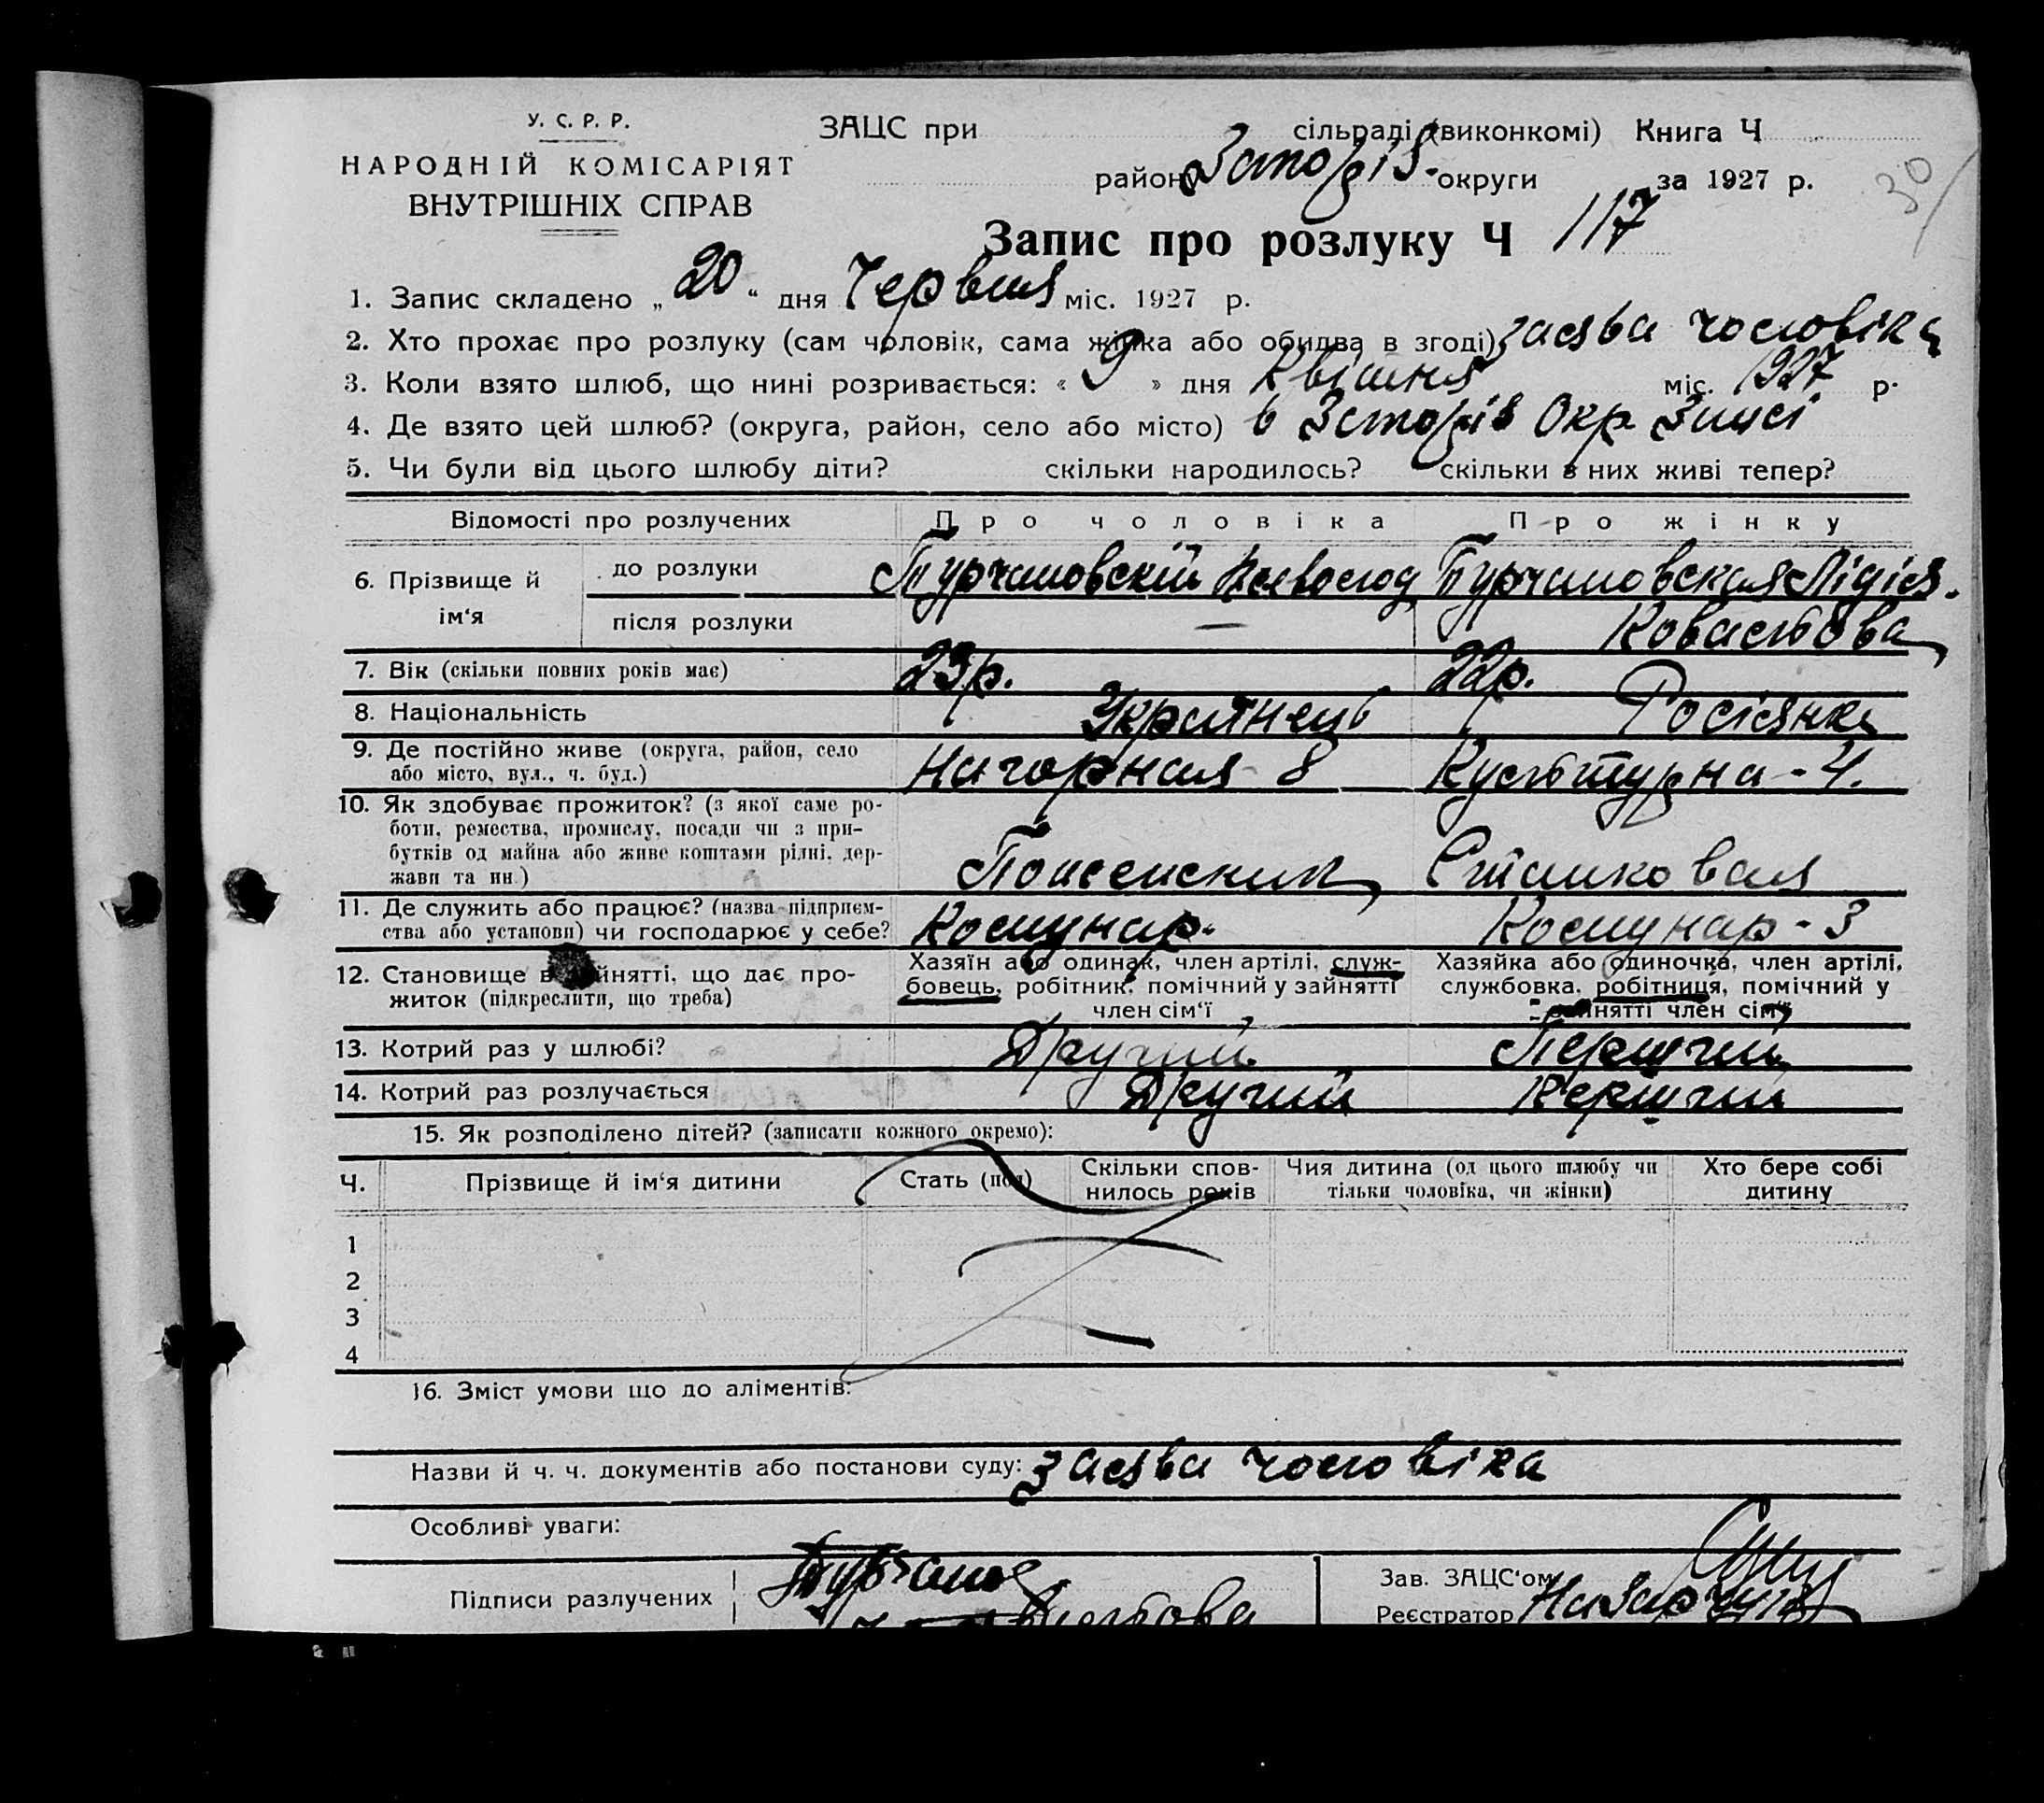 У. С. Р. Р.
НАРОДНІЙ КОМІСАРІЯТ
ВНУТРІШНІХ СПРАВ
ЗАЦС при сільраді (виконкомі) Книга Ч
району Запоріз. округи за 1927 р.
30
Запис про розлуку Ч 117
1. Запис складено „ 20 “ дня Червня міс. 1927 р.
2. Хто прохає про розлуку (сам чоловік, сама жінка або обидва в згоді) заява чоловіка
3. Коли взято шлюб, що нині розривається: « 9 » дня Квітня міс. 1927 р.
4. Де взято цей шлюб? (округа, район, село або місто) в Окр.
5. Чи були від цього шлюбу діти? скільки народилось? скільки з них живі тепер?
Відомості про розлучених Про чоловіка Про жінку
6. Прізвище й ім‘я
до розлуки Турчановскій Турчановская Лідія.
після розлуки —
7. Вік (скільки повних років має) 23р. 22р.
8. Національність Украінець Росіянка
9. Де постійно живе (округа, район, село
або місто, вул., ч. буд.) Нагорная 8 Культурна - 4.
10. Як здобуває прожиток? (з якої саме ро-
боти, ремества, промислу, посади чи з при-
бутків од майна або живе коштами рідні, дер-
жави та ин.)
11. Де служить або працює? (назва підприєм-
ства або установи) чи господарює у себе? Комунар. Комунар - 3
12. Становище в зайнятті, що дає про-
житок (підкреслити, що треба)
Хазяїн або одинак, член артілі, служ-
бовець, робітник, помічний у зайнятті
член сім‘ї
Хазяйка або одиночка, член артілі,
службовка, робітниця, помічний у
зайнятті член сім‘ї
13. Котрий раз у шлюбі? Другий Першчий
14. Котрий раз розлучається Другий Першчий
15. Як розподілено дітей? (записати кожного окремо):
Ч. Прізвище й ім‘я дитини Стать (пол) Скільки спов-
нилось років Чия дитина (од цього шлюбу чи
тільки чоловіка, чи жінки) Хто бере собі
дитину
1
2
3
4
16. Зміст умови що до аліментів:
Назви й ч. ч. документів або постанови суду: заява чоловіка
Особливі уваги:
Підписи разлучених
Зав. ЗАЦС‘ом
Реєстратор